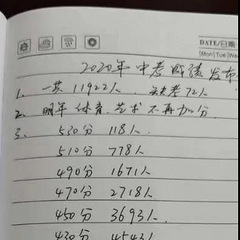 DATE/日期
Mon Tue Wed
2020年中考成绩发布
1. 一共11922人, 缺考72人
2. 明年体育、艺术不再加分.
3.
530分 118人.
510分 778人
490分 1671人
470分 2718人
450分 3693人
430分 4543人